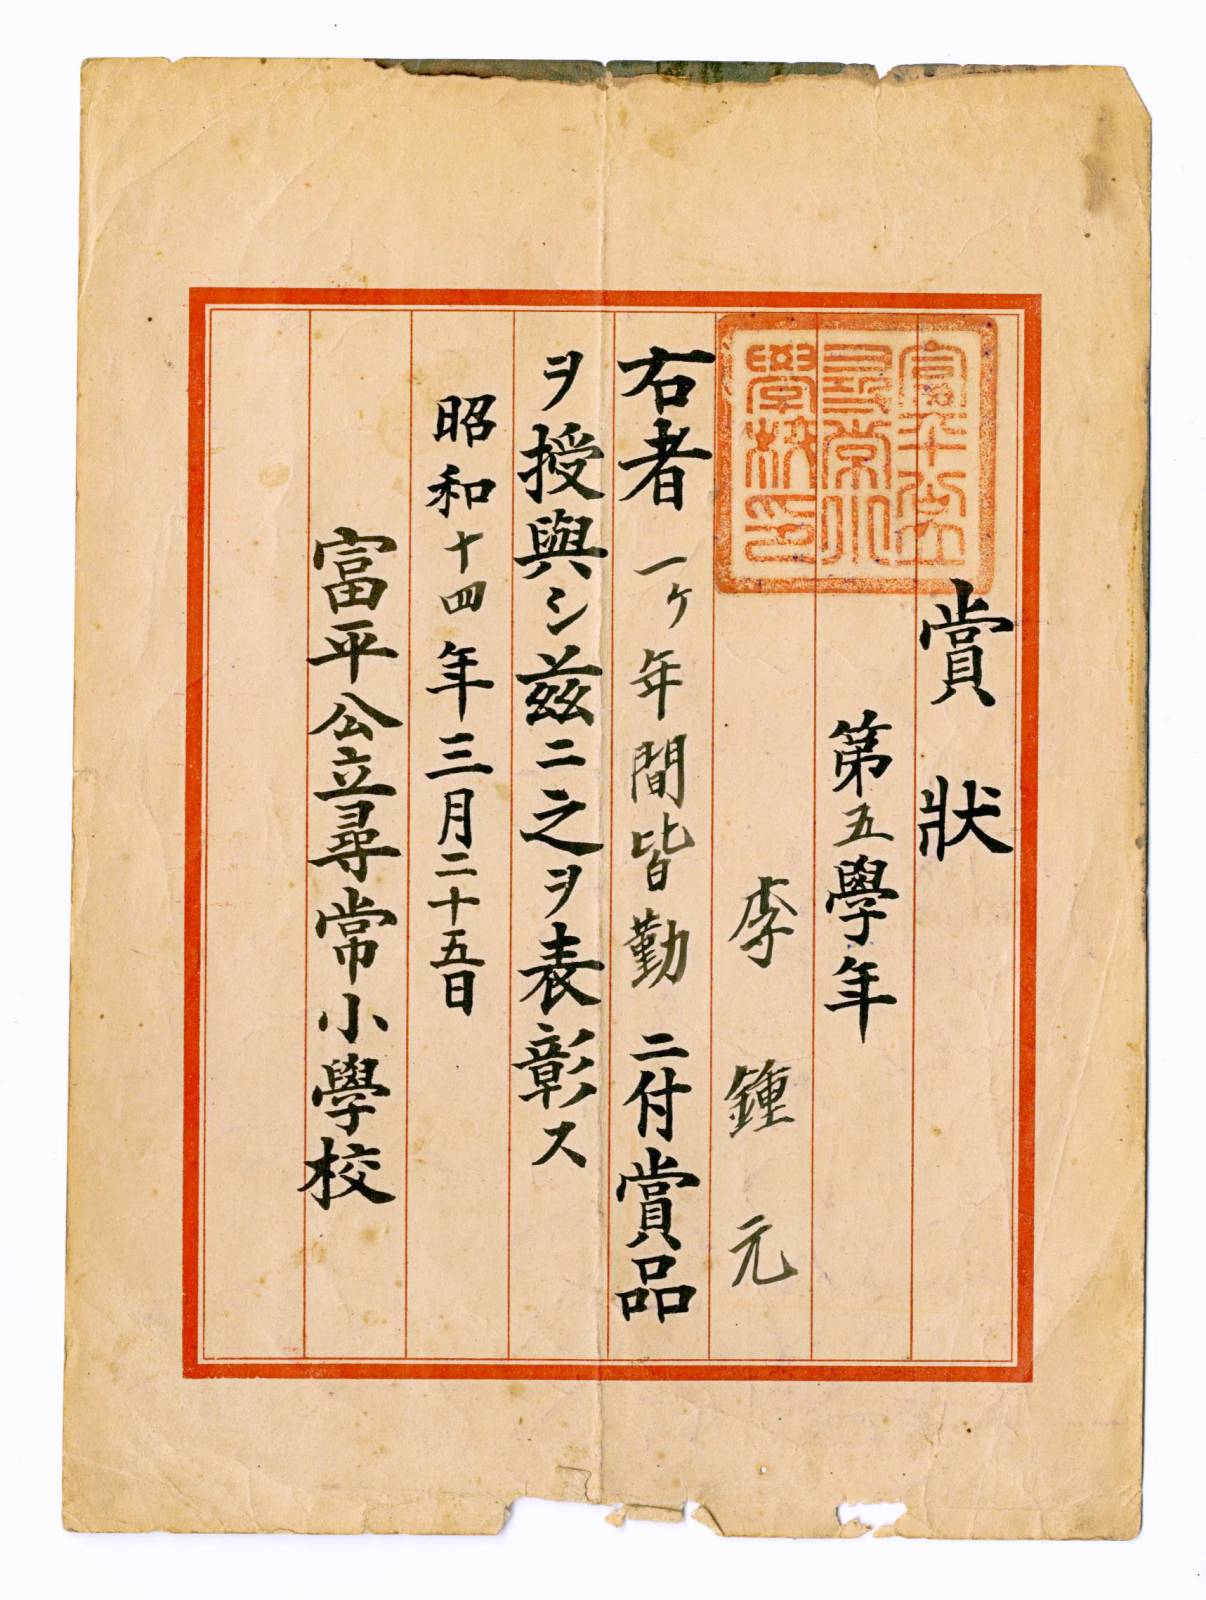 賞狀
第五學年
李鍾元
右者一ヶ年間皆勤ニ付賞品
ヲ授與シ茲ニ之ヲ表彰ス
昭和十四年三月二十五日
富平公立尋常小學校
富平公立
尋常小
學校印